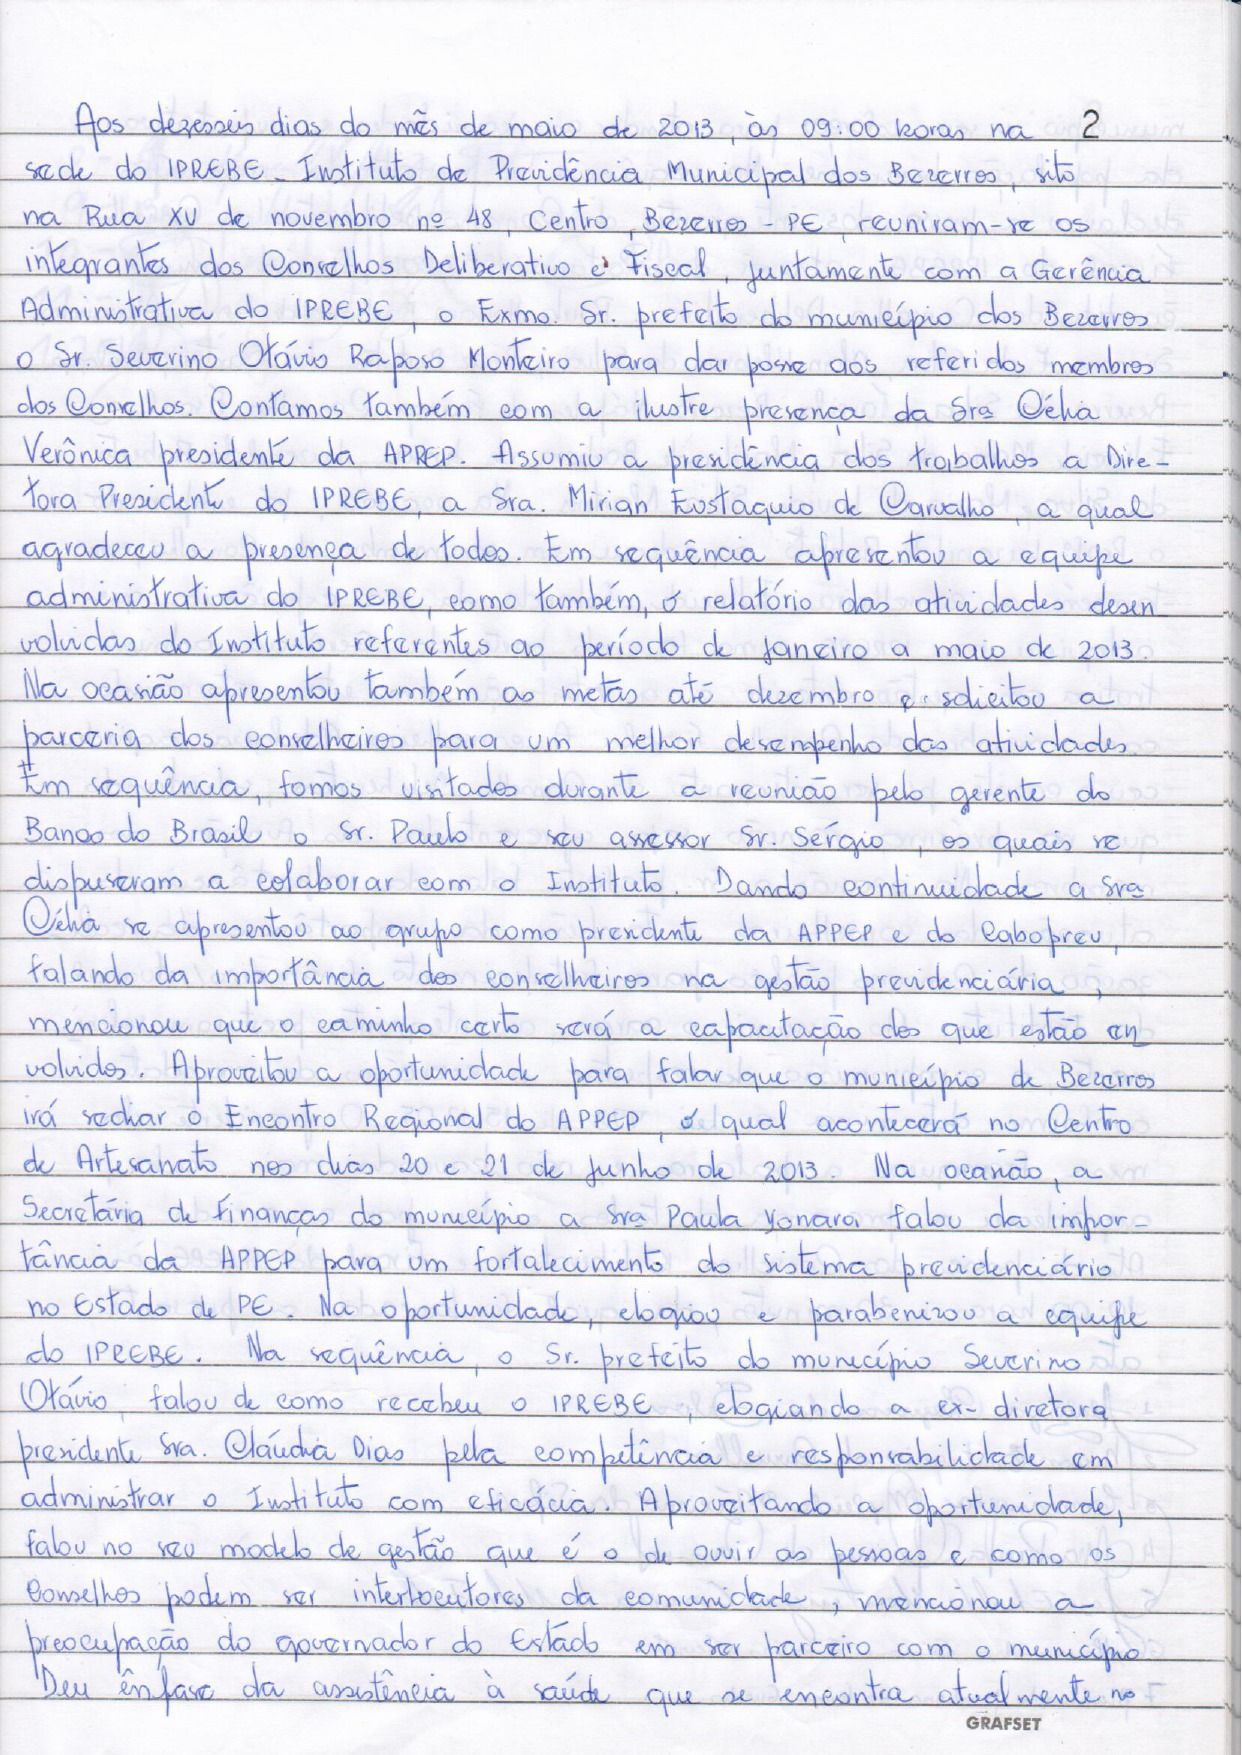 Aos dezesseis dias do mês de maio de 2013, às 09:00 horas na 2
sede do IPREBE - Instituto de Previdência Municipal dos Bezerros, sito
na Rua XV de novembro nº 48, Centro, Bezerros - PE, reuniram-se os
integrantes dos Conselhos Deliberativo e Fiscal, juntamente com a Gerência
Administrativa do IPREBE, o Exmo. Sr. prefeito do município dos Bezerros
o Sr. Severino Otávio Raposo Monteiro para dar posse aos referidos membros
dos Conselhos. Contamos também com a ilustre presença da Srª Célia
Verônica presidente da APREP. Assumiu a presidência dos trabalhos a Dire-
tora Presidente do IPREBE, a Sra. Mirian Eustáquio de Carvalho, a qual
agradeceu a presença de todos. Em sequência apresentou a equipe
administrativa do IPREBE, como também, o relatório das atividades desen
volvidas do Instituto referentes ao período de janeiro a maio de 2013.
Na ocasião apresentou também as metas até dezembro e solicitou a
parceria dos conselheiros para um melhor desempenho das atividades.
Em sequência, fomos visitados durante a reunião pelo gerente do
Banco do Brasil o Sr. Paulo e seu assessor Sr. Sérgio, os quais se
dispuseram a colaborar com o Instituto. Dando continuidade a Srª
Célia se apresentou ao grupo como presidente da APPEP e do Caboprev,
falando da importância dos conselheiros na gestão previdenciária,
mencionou que o caminho certo será a capacitação dos que estão en
volvidos. Aproveitou a oportunidade para falar que o município de Bezerros
irá sediar o Encontro Regional do APPEP, o qual acontecerá no Centro
de Artesanato nos dias 20 e 21 de junho de 2013. Na ocasião, a
Secretária de Finanças do município a Srª Paula Yonara falou da impor-
tância da APPEP para um fortalecimento do sistema previdenciário
no Estado de PE. Na oportunidade, elogiou e parabenizou a equipe
do IPREBE. Na sequência, o Sr. prefeito do município Severino
Otávio, falou de como recebeu o IPREBE, elogiando a ex-diretora
presidente Sra. Cláudia Dias pela competência e responsabilidade em
administrar o Instituto com eficácia. Aproveitando a oportunidade,
falou no seu modelo de gestão que é o de ouvir as pessoas e como os
Conselhos podem ser interlocutores da comunidade, mencionou a
preocupação do governador do Estado em ser parceiro com o município.
Deu ênfase da assistência à saúde que se encontra atualmente no
GRAFSET